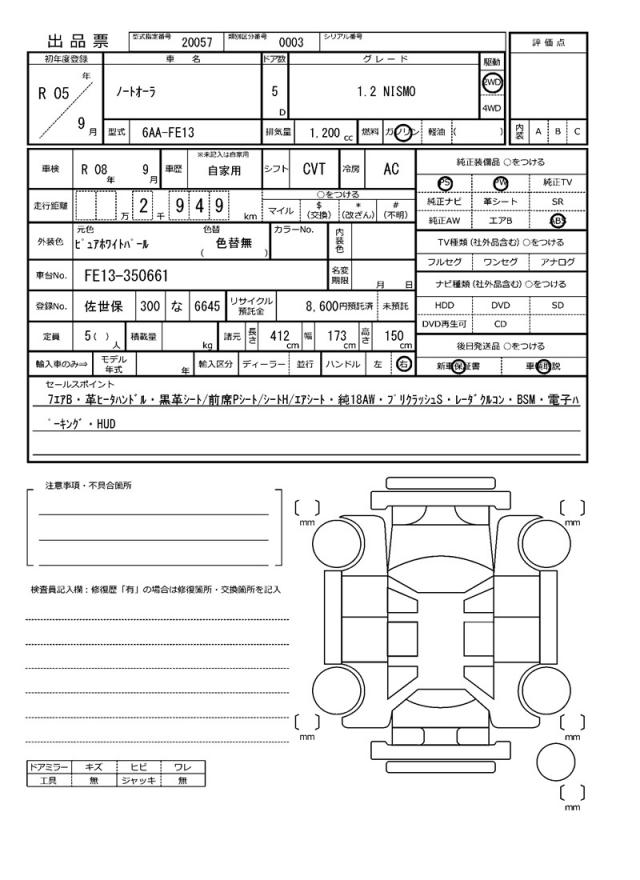 出品票 型式指定番号 20057 類別区分番号 0003 シリアル番号
評価点
初年度登録 車名 ドア数 グレード 駆動
R 05 年 9 月 ノートオーラ 5 D 1.2 NISMO 2WD 4WD
型式 6AA-FE13 排気量 1.200 cc 燃料 ガソリン 軽油 ( ) 内装 A B C
車検 R 08 年 9 月 車歴 ※未記入は自家用 自家用 シフト CVT 冷房 AC
純正装備品 ○をつける
PS PW 純正TV
純正ナビ 革シート SR
純正AW エアB ABS
走行距離 万 2 千 9 4 9 km ○をつける
マイル $ (交換) * (改ざん) # (不明)
TV種類 (社外品含む) ○をつける
フルセグ ワンセグ アナログ
外装色 元色 ピュアホワイトパール 色替 ( 色替無 ) カラーNo. 内装色
車台No. FE13-350661 名変期限 月 日
ナビ種類 (社外品含む) ○をつける
HDD DVD SD
DVD再生可 CD
登録No. 佐世保 300 な 6645 リサイクル預託金 8,600円預託済 未預託
定員 5( ) 人 積載量 kg 諸元 長さ 412 cm 幅 173 cm 高さ 150 cm
後日発送品 ○をつける
輸入車のみ⇒ モデル年式 年 輸入区分 ディーラー 並行 ハンドル 左 右
新車保証書 車輌取説
セールスポイント
7エアB・革ヒータハンドル・黒革シート/前席Pシート/シートH/エアシート・純18AW・プリクラッシュS・レーダクルコン・BSM・電子パ
ーキング・HUD
注意事項・不具合箇所
mm
mm
検査員記入欄：修復歴「有」の場合は修復箇所・交換箇所を記入
mm
mm
ドアミラー キズ ヒビ ワレ
工具 無 ジャッキ 無
mm